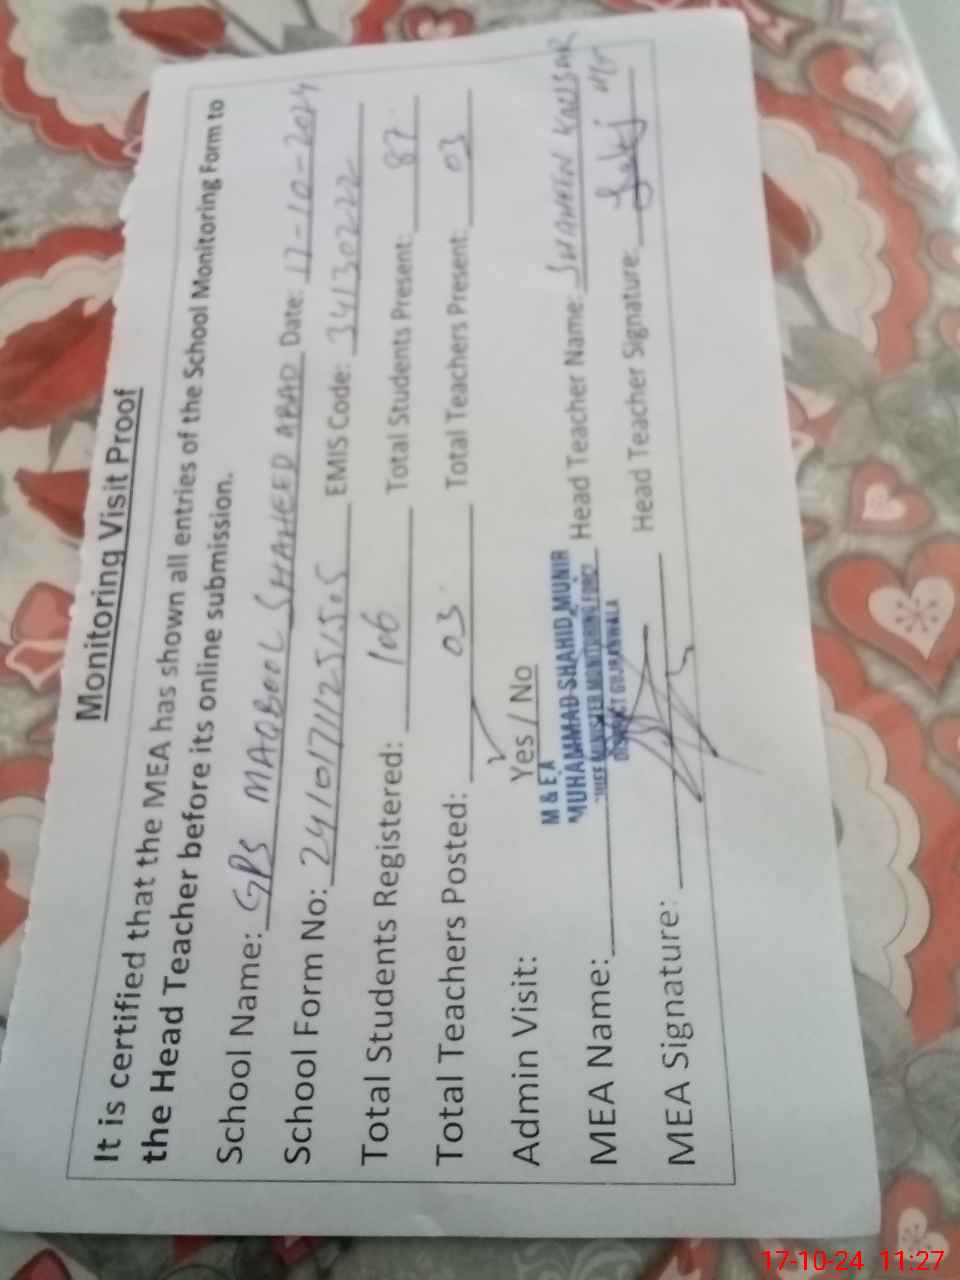 Monitoring Visit Proof
It is certified that the MEA has shown all entries of the School Monitoring Form to
the Head Teacher before its online submission.
School Name: GPS MAQBOOL SHAHEED ABAD Date: 17-10-2024
School Form No: EMIS Code: 34130222
Total Students Registered: 106 Total Students Present: 87
Total Teachers Posted: 03 Total Teachers Present: 03
Admin Visit: Yes / No
M & E.A
MEA Name: MUHAMMAD SHAHID MUNIR Head Teacher Name: SHAHIN KAUSAR
CHIEF MINISTER MONITORING FORCE
DISTRICT GUJRANWALA
MEA Signature: Head Teacher Signature:
17-10-24 11:27